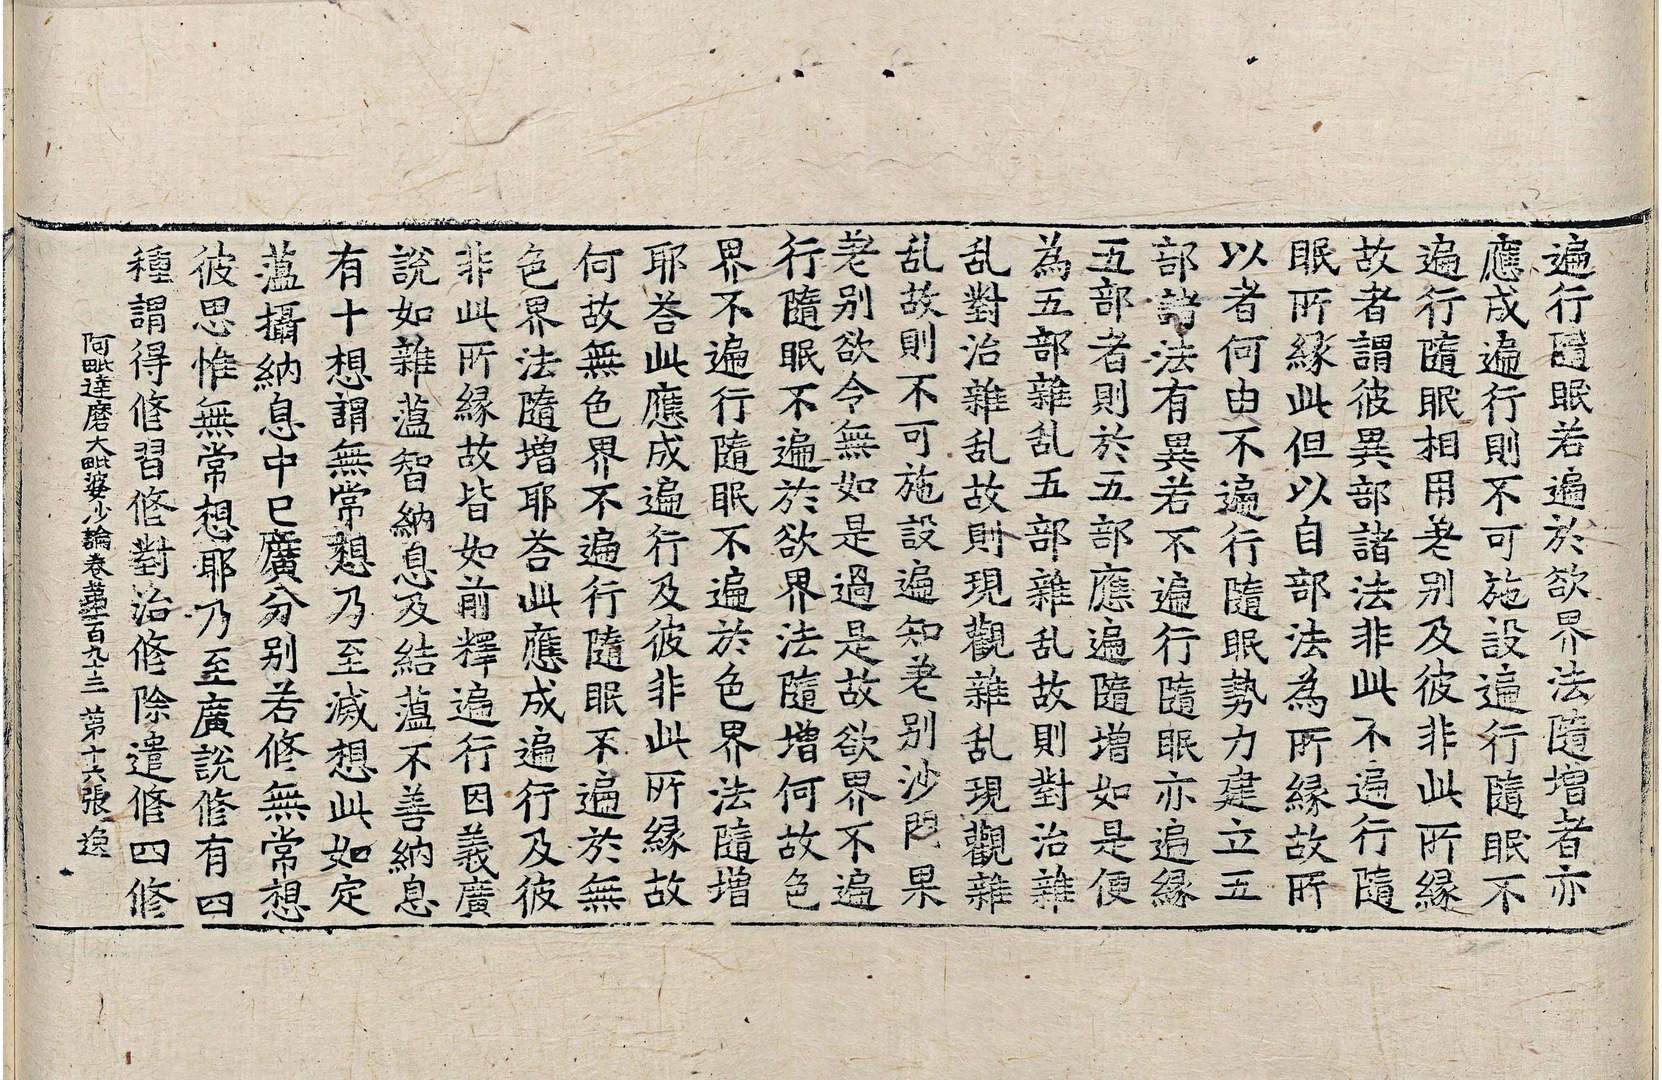 遍行隨眠若遍於欲界法隨增者亦
應成遍行則不可施設遍行隨眠不
遍行隨眠相用差别及彼非此所縁
故者謂彼異部諸法非此不遍行隨
眠所縁此但以自部法為所縁故所
以者何由不遍行隨眠勢力建立五
部諸法有異若不遍行隨眠亦遍縁
五部者則於五部應遍隨增如是便
為五部雜乱五部雜乱故則對治雜
乱對治雜乱故則現觀雜乱現觀雜
乱故則不可施設遍知差别沙門果
差别欲令無如是過是故欲界不遍
行隨眠不遍於欲界法隨增何故色
界不遍行隨眠不遍於色界法隨增
耶荅此應成遍行及彼非此所縁故
何故無色界不遍行隨眠不遍於無
色界法隨增耶荅此應成遍行及彼
非此所縁故皆如前釋遍行因義廣
說如雜薀智納息及結薀不善納息
有十想謂無常想乃至滅想此如定
薀攝納息中已廣分别若修無常想
彼思惟無常想耶乃至廣說修有四
種謂得修習修對治修除遣修四修
阿毗達磨大毗婆沙論卷第一百九十三 第十六張 逸